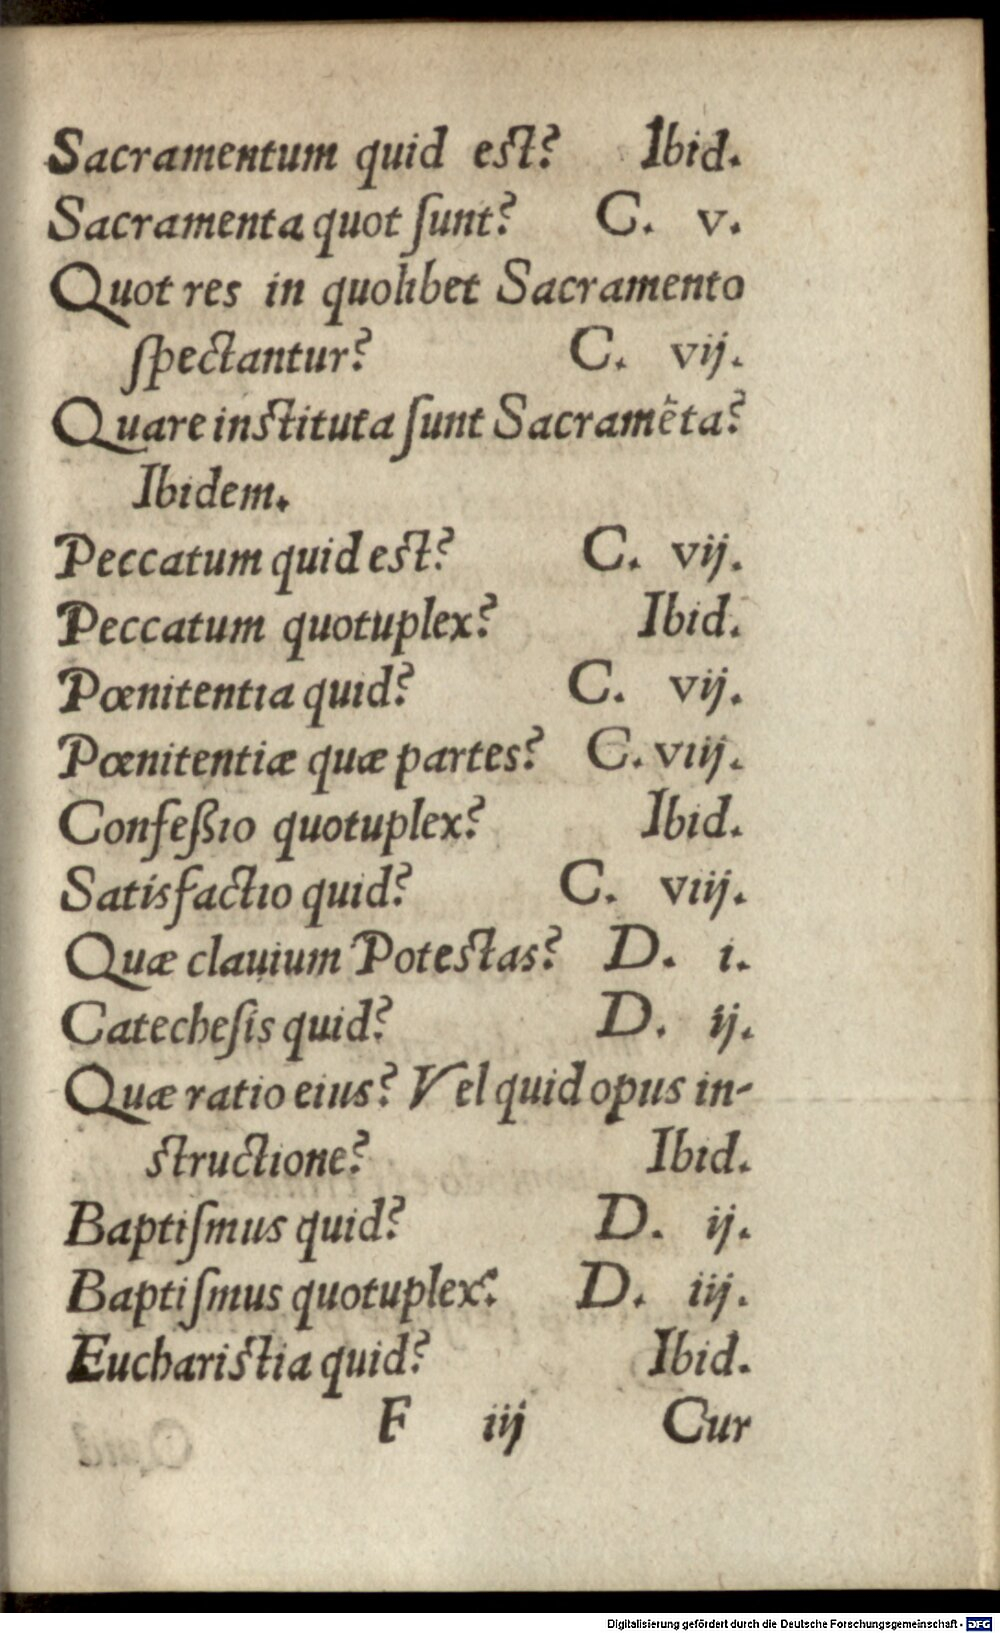 Sacramentum quid est? Ibid.
Sacramenta quot ſunt? C. v.
Quot res in quolibet Sacramento
ſpectantur? C. vij.
Quare instituta ſunt Sacramēta?
Ibidem.
Peccatum quid est? C. vij.
Peccatum quotuplex? Ibid.
Pœnitentia quid? C. vij.
Pœnitentiæ quæ partes? C. viij.
Confeßio quotuplex? Ibid.
Satisfactio quid? C. viij.
Quæ clauium Potestas? D. i.
Catecheſis quid? D. ij.
Quæ ratio eius? Vel quid opus in-
structione? Ibid.
Baptiſmus quid? D. ij.
Baptiſmus quotuplex? D. iij.
Eucharistia quid? Ibid.
F iij Cur
Digitalisierung gefördert durch die Deutsche Forschungsgemeinschaft - DFG